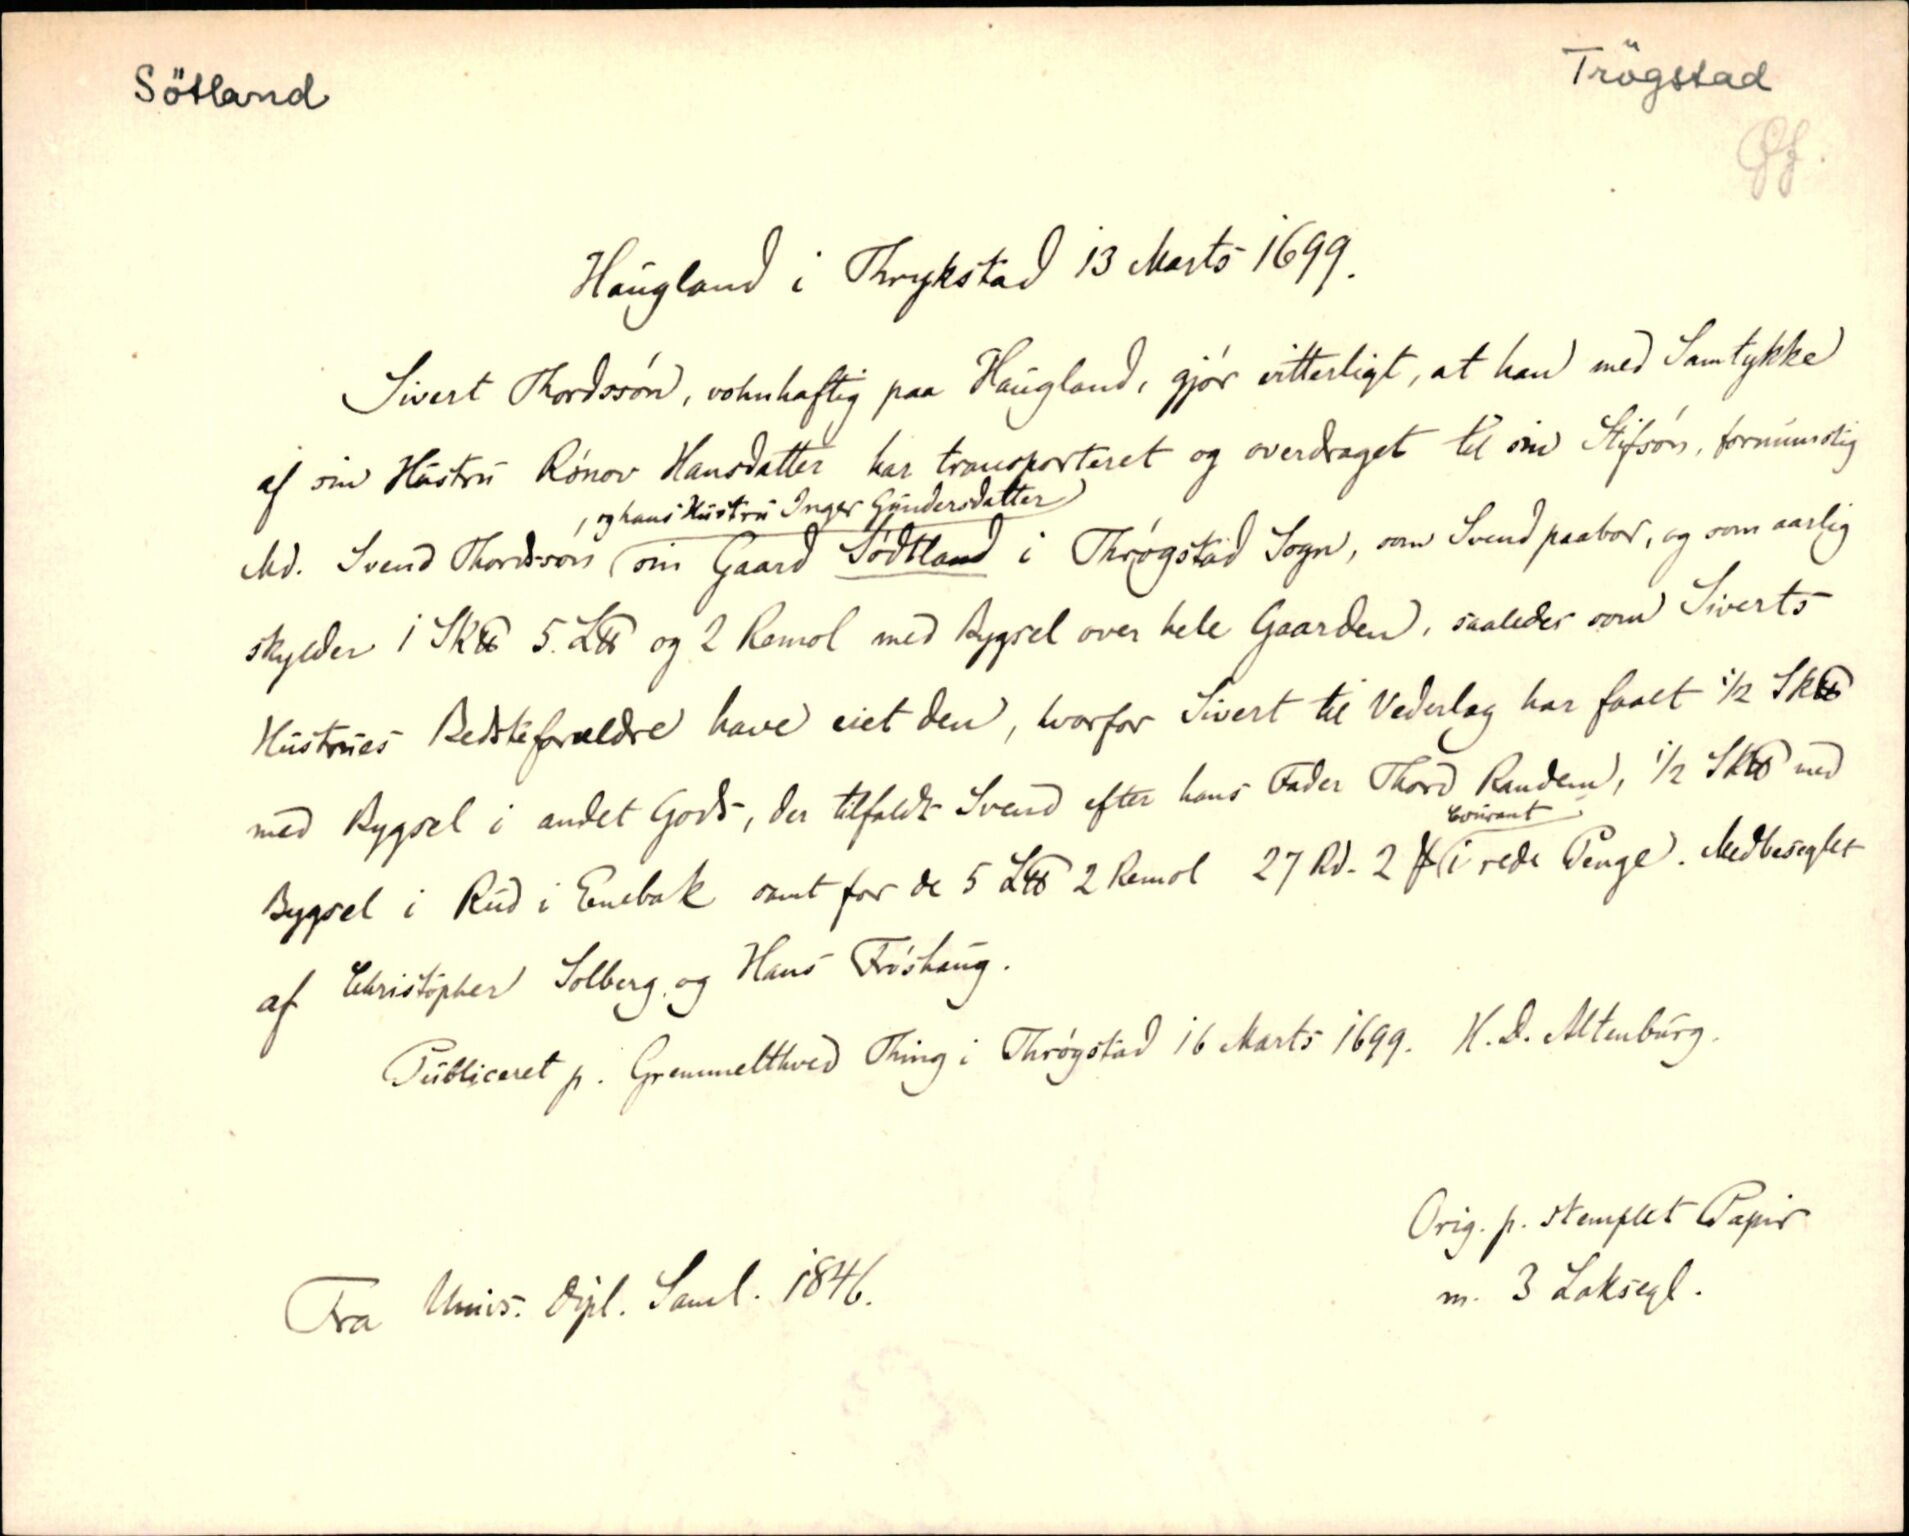 Sötland
Trögstad
Haugland i Thrykstad 13 Marts 1699.
Sivert Thordssøn, vohnhaftig paa Haugland, gjør vitterligt, at han med Samtykke
af sin Hustru Rønov Hansdatter har transporteret og overdraget til sin Stifsøn, fornumstig
, og hans Hustru Inger Gundersdatter
Md. Svend Thordssøn sin Gaard Sødtland i Thrøgstad Sogn, som Svend paabor, og som aarlig
skylder 1 Sk℔ 5. L℔ og 2 Remol med Bygsel over hele Gaarden, saaledes som Siverts
Hustrues Bedsteforældre have eiet den, hvorfor Sivert til Vederlag har faaet 1/2 Sk℔
med Bygsel i andet Gods, der tilfaldt Svend efter hans Fader Thord Randem, 1/2 Sk℔ med
Courant
Bygsel i Rud i Enebak samt for de 5 L℔ 2 Remol 27 Rd. 2 ꝼ i rede Penge. Medbeseglet
af Christopher Solberg og Hans Frøshaug.
Publiceret p. Gremmelthved Thing i Thrøgstad 16 Marts 1699. H. D. Altenburg.
Orig. p. stemplet Papir
m. 3 Laksegl.
Fra Univs. Dipl. Saml. 1846.